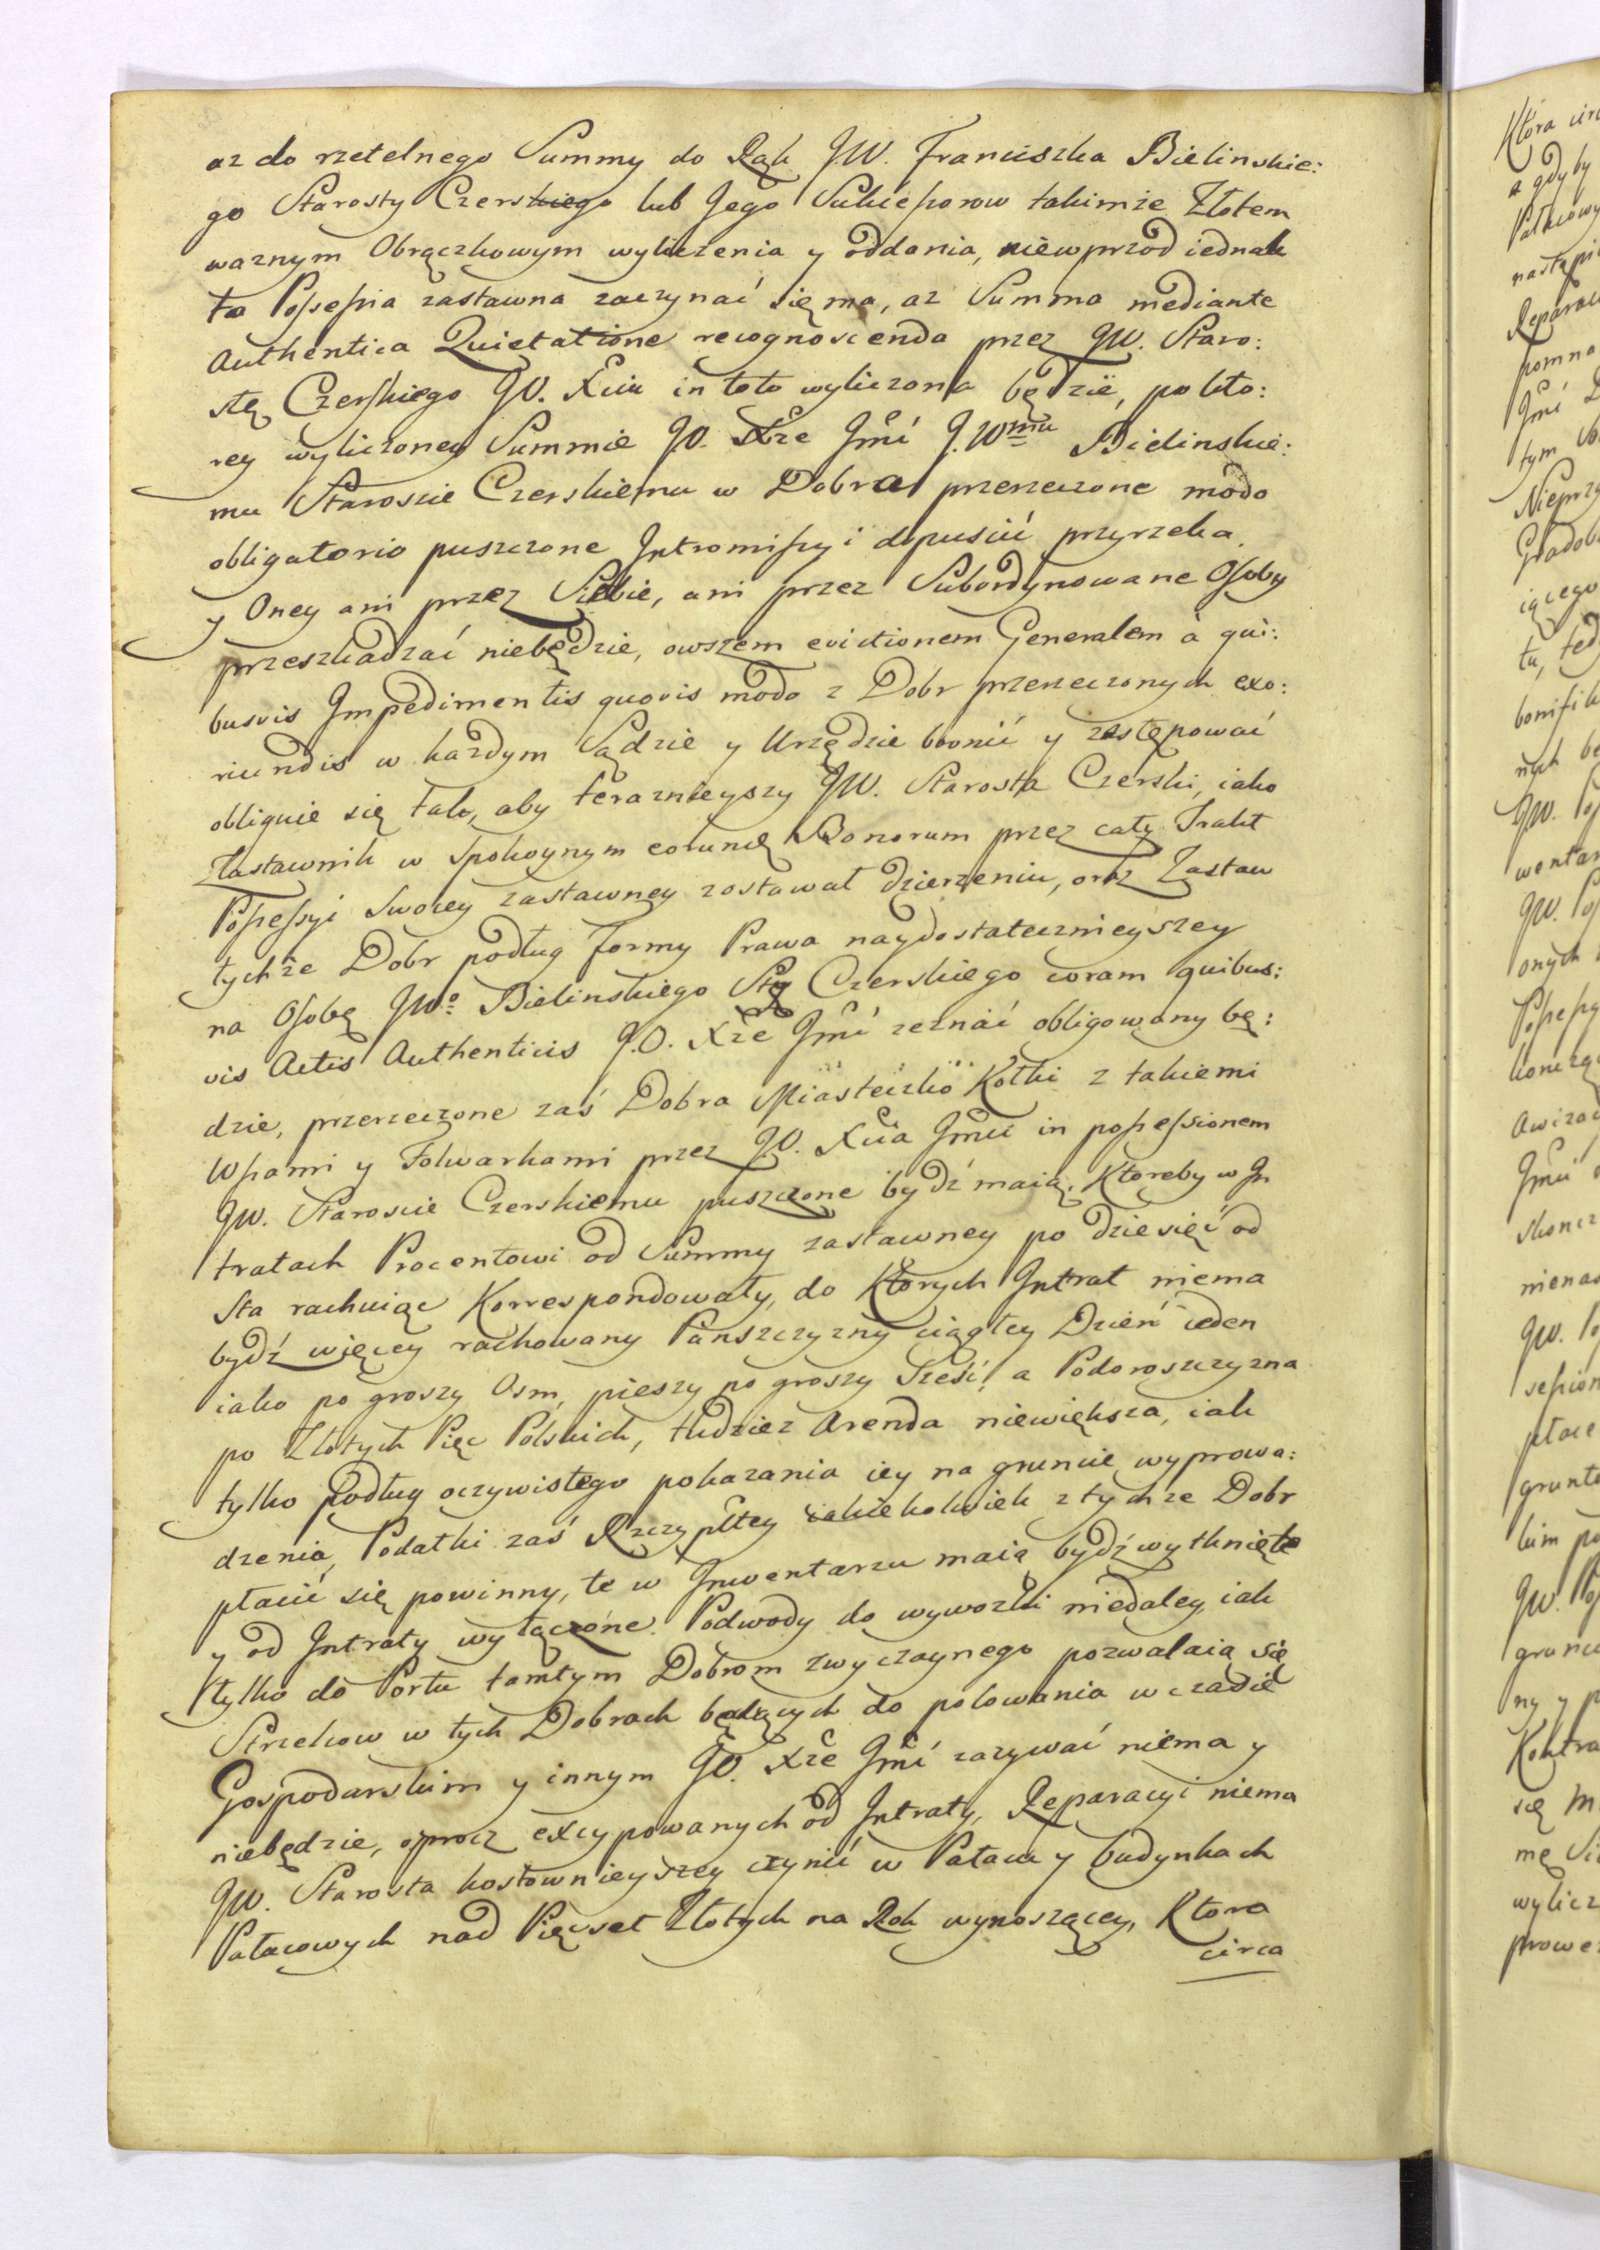 az do rzetelnego Summy do Rąk JW. Franciszka Bielinskie:
go Starosty Czerskiego lub Jego Sukcessorow takimże Złotem
waznym Obrączkowym wyliczenia y oddania, niewprzod iednak
ta Possessia zastawna zaczynać się ma, az Summa mediante
Authentica Quietatione recognoscenda przez JW. Staro:
stę Czerskiego JO. Xciu in toto wyliczona będzie, po kto:
rey wyliczoney Summie JO. Xże Jmć J.Wmu Bielinskie:
mu Staroscie Czerskiemu w Dobra przerzeczone modo
obligatorio puszczone Intromissyi dopuścić przyrzeka
y Oney ani przez Siebie, ani przez Subordynowane Osoby
przeszkadzać niebędzie, owszem evictionem Generalem à qui:
busvis Impedimentis quovis modo z Dobr przerzeczonych exo:
riundis w każdym Sądzie y Urzędzie bronić y zastępować
obliguie się tak, aby teraznieyszy JW. Starosta Czerski, iako
Zastawnik w Spokoynym eorund Bonorum przez cały Trakt
Possessyi Swoiey zastawney zostawał dzierzeniu, oraz Zastaw
tychże Dobr podług Formy Prawa naydostatecznieyszey
na Osobę JWo Bielinskiego Sty Czerskiego coram quibus:
vis Actis Authenticis J.O. Xże Jmć zeznać obligowany bę:
dzie, przerzeczone zaś Dobra Miasteczko Kołki z takiemi
Wsiami y Folwarkami przez JO. Xcia Jmci in possessionem
JW. Staroscie Czerskiemu puszczone bydź maią, Ktoreby w In
tratach Procentowi od Summy zastawney po dziesięć od
Sta rachuiąc Korrespondowały, do Ktorych Intrat niema
bydź więcey rachowany Panszczyzny ciągłey Dzień ieden
iako po groszy Osm, pieszy po groszy Sześć, a Podoroszczyzna
po Złotych Pięc Polskich, tudziez Arenda niewiększa, iak
tylko podług oczywistego pokazania iey na gruncie wyprowa:
dzenia, Podatki zaś Rzczypltey iakiekolwiek z tychze Dobr
płacić się powinny, te w Inwentarzu maią bydź wytknięte
y od Intraty wyłączone. Podwody do wywozki niedaley iak
tylko do Portu tamtym Dobrom zwyczaynego pozwalaią się
Strzelcow w tych Dobrach będących do polowania w czasie
Gospodarskim y innym JO. Xże Jmć zazywać niema y
niebędzie, oprocz excypowanych od Intraty, Reparacyi niema
JW. Starosta kosztownieyszey czynić w Pałacu y budynkach
Pałacowych nad Pięcset Złotych na Rok wynoszącey, Ktora
circa